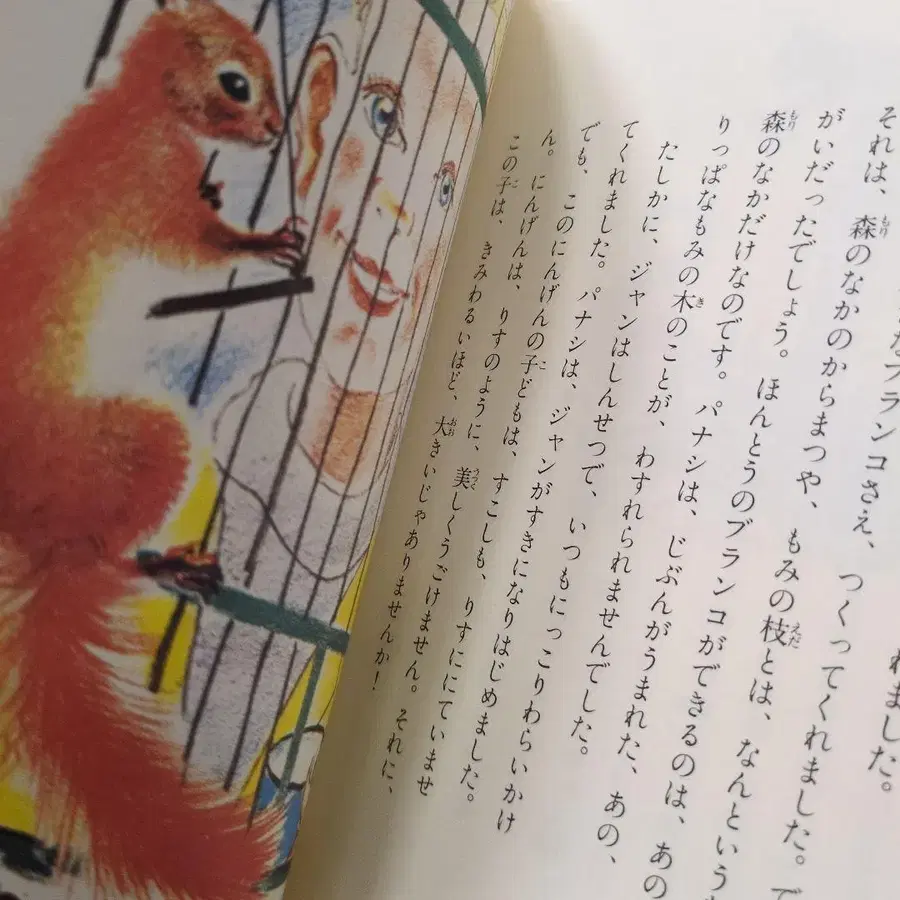 れました。
なブランコさえ、つくってくれました。で
それは、森のなかのからまつや、もみの枝とは、なんという
がいだったでしょう。ほんとうのブランコができるのは、あの
森のなかだけなのです。パナシは、じぶんがうまれた、あの、
りっぱなもみの木のことが、わすれられませんでした。
たしかに、ジャンはしんせつで、いつもにっこりわらいかけ
てくれました。パナシは、ジャンがすきになりはじめました。
でも、このにんげんの子どもは、すこしも、りすににていませ
ん。にんげんは、りすのように、美しくうごけません。それに、
この子は、きみわるいほど、大きいじゃありませんか!